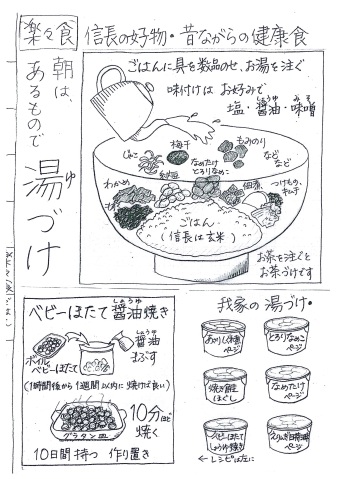 楽々食
信長の好物・昔ながらの健康食
朝は、
あるもので
湯づけ
ゆ
ごはんに具を数品のせ、お湯を注ぐ
味付けは お好みで
しょうゆ みそ
塩・醤油・味噌
じゃこ
梅干
もみのり
などなど
なめたけ
とろりなめこ
わかめ
納豆
佃煮
つけもの、
キムチ
ごはん
(信長は玄米)
お茶を注ぐと
お茶づけです
しょうゆ
ベビーほたて 醤油焼き
ボイル
ベビーほたて
しょうゆ
醤油
まぶす
(1時間後から1週間以内に焼けば良い)
10分ほど
焼く
グラタン皿
10日間持つ 作り置き
我家の 湯づけ・
ページ
とろりなめこ
ページ
焼き鮭
ほぐし
なめたけ
ページ
ベビーほたて
しょうゆ焼き
ページ
←レシピは左に